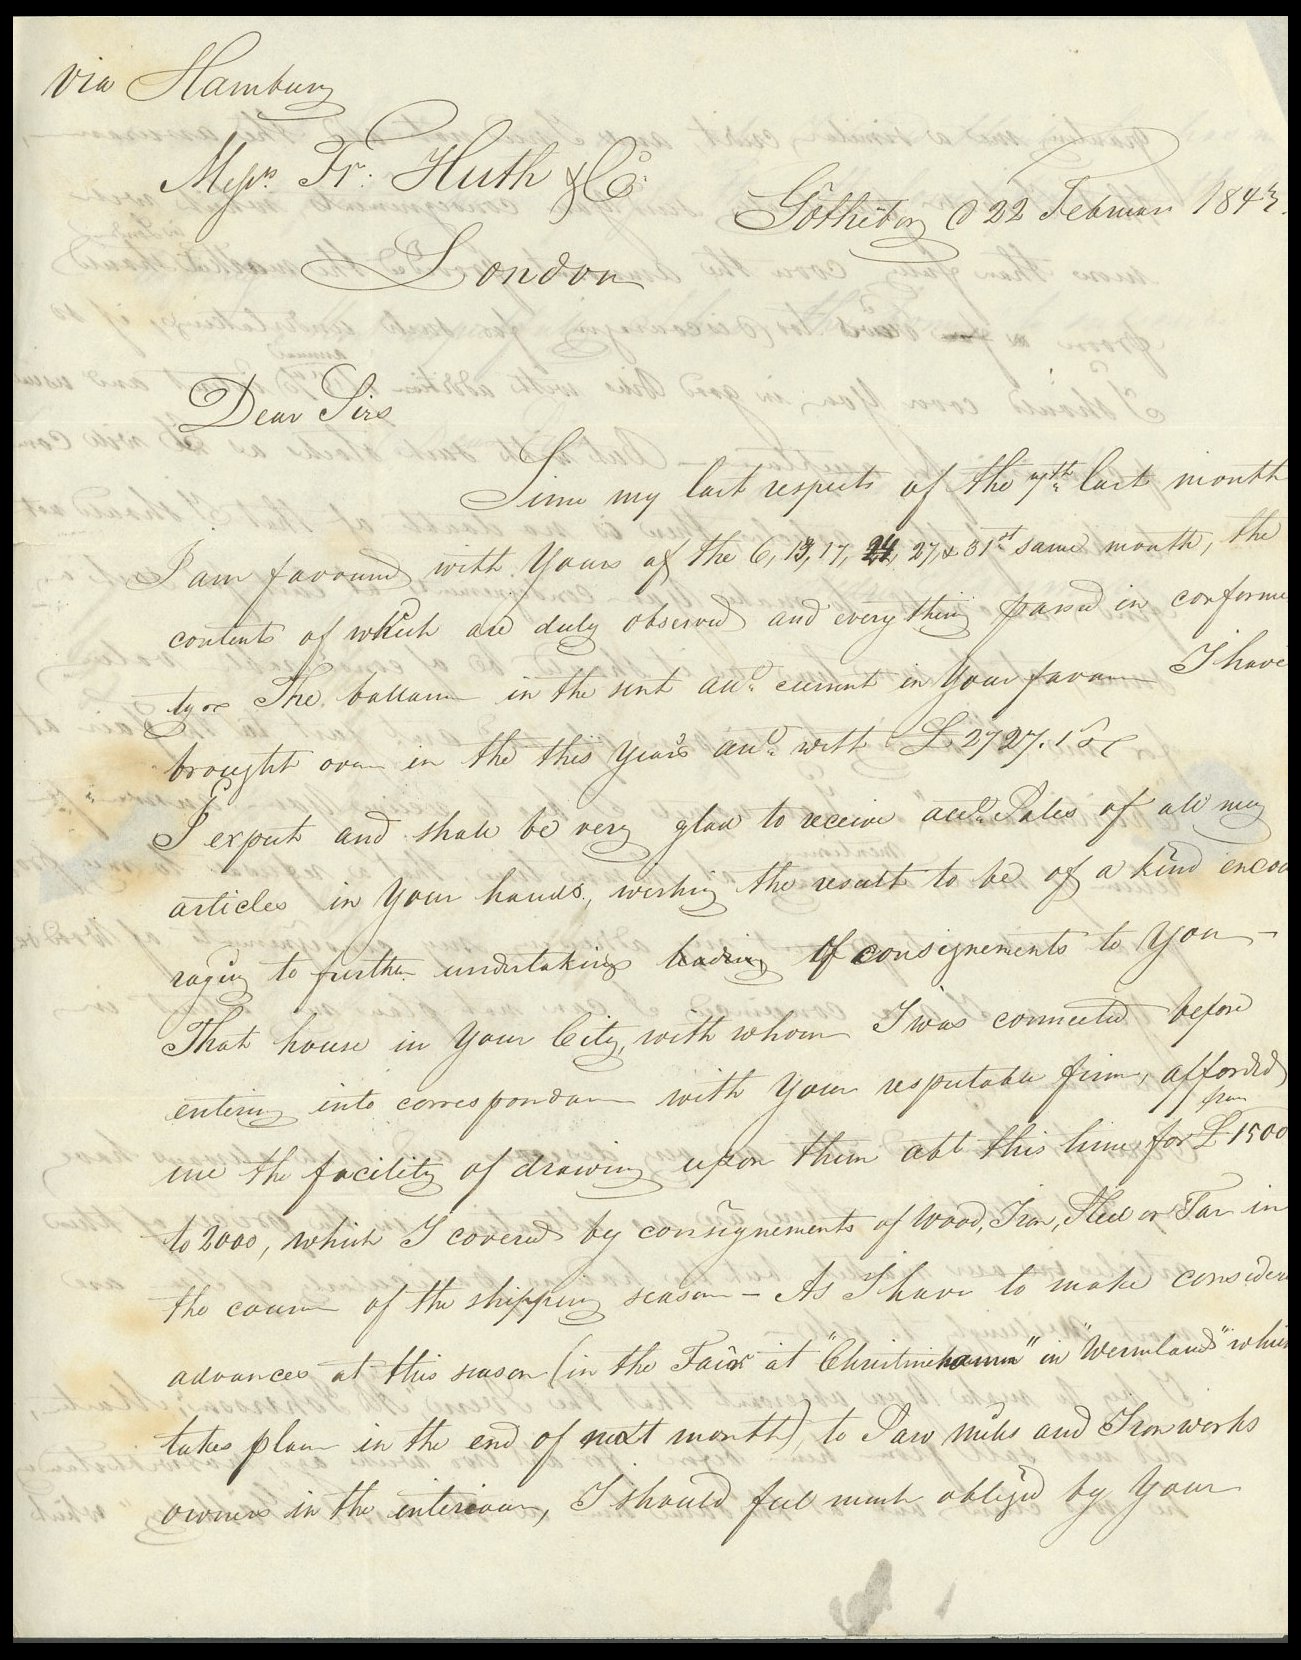 via Hamburg
Messrs. Fr: Huth & Co:
Götheborg d 22 Februari 1843.
London
Dear Sirs
Since my last respects of the 7th last month
I am favoured with Yours of the 6, 13, 17, 24, 27, & 31st same month, the
contents of which are duly observed and every thing passed in conformi
ty The ballance in the sent acct. current in Your favour I have
brought over in the this Years acct. with £ 2727.
I expect and shall be very glad to receive acct. Sales of all my
articles in Your hands, wishing the result to be of a kind encou
raging to further undertakings of consignements to You –
That house in Your City, with whom I was connected before
entering into correspondance with Your reputable firm, afforded
from
me the facility of drawing upon them abt this time for £ 1500
to 2000, which I covered by consignements of Wood, Iron, Steel or Tar in
the course of the shipping season – As I have to make consider
advances at this season (in the Fair at "Christinehamn" in "Wermland" which
takes place in the end of next month), to Saw mills and Iron works
owners in the interiour, I should feel much oblig'd by Your